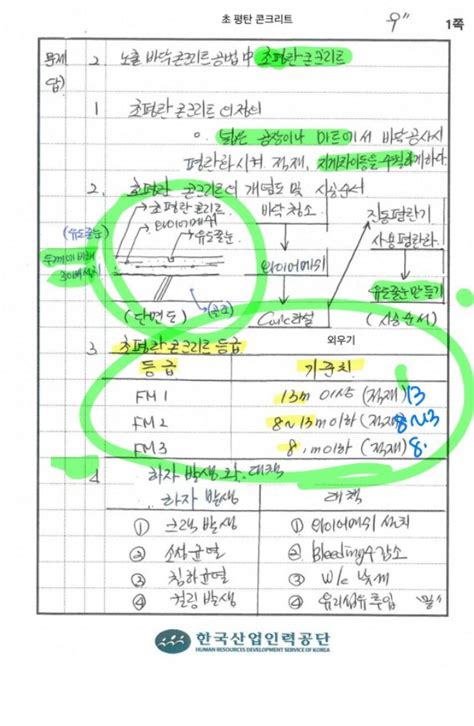 초 평탄 콘크리트
1쪽
문제 2. 노출 바닥콘크리트공법 中 초평탄콘크리트
답)
1 초평탄 콘크리트의 정의
넓은 공장이나 마트에서 바닥공사시
평탄화시켜 적재,
2. 초평탄 콘크리트의 개념도 및 시공순서
초평탄콘크리트
와이어메쉬
유도줄눈
(유도줄눈)
바닥청소
와이어메쉬
Conc타설
진동평탄기
사용평탄화
유도줄눈만들기
(단면도)
(시공순서)
3 초평탄 콘크리트 등급
외우기
등급 기준치
FM1 13m 이상 (적재) 13
FM2 8~13m이하 (적재) 8~13
FM3 8.m이하 (적재) 8.
4 하자 발생과 대책
하자 발생 대책
① 크랙 발생 ① 와이어메쉬 설치
② 소성균열 ② Bleeding수 감소
③ 침하균열 ③ w/c 낮게
④ 컬링발생 ④ 유리섬유투입 "끝"
한국산업인력공단
HUMAN RESOURCES DEVELOPMENT SERVICE OF KOREA